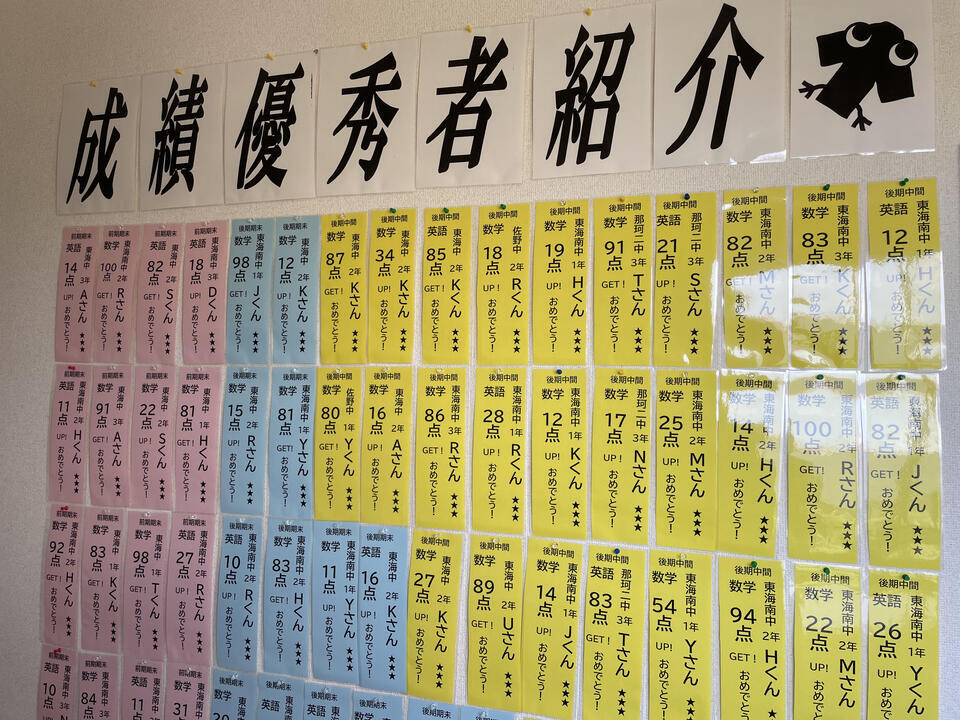 成績優秀者紹介
前期期末 英語 東海中 2年 14点 UP! Aさん おめでとう! ★★★
前期期末 数学 東海南中 2年 100点 GET! Rさん おめでとう! ★★★
前期期末 英語 東海南中 2年 82点 GET! Sくん おめでとう! ★★★
前期期末 英語 東海南中 1年 18点 UP! Dくん おめでとう! ★★★
後期期末 数学 東海南中 1年 98点 GET! Jくん おめでとう! ★★★
後期期末 数学 東海中 2年 12点 UP! Kさん おめでとう! ★★★
後期中間 数学 佐野中 2年 87点 GET! Kさん おめでとう! ★★★
後期中間 数学 東海中 2年 34点 UP! Kさん おめでとう! ★★★
後期中間 英語 東海中 2年 85点 GET! Kくん おめでとう! ★★★
後期中間 数学 佐野中 3年 18点 UP! Rくん おめでとう! ★★★
後期中間 数学 東海南中 1年 19点 UP! Hくん おめでとう! ★★★
後期中間 数学 那珂二中 3年 91点 GET! Tさん おめでとう! ★★★
後期中間 英語 那珂二中 3年 21点 UP! Sさん おめでとう! ★★★
後期中間 数学 東海南中 2年 82点 GET! Mさん おめでとう! ★★★
後期中間 数学 東海南中 2年 83点 GET! Kくん おめでとう! ★★★
後期中間 英語 東海南中 1年 12点 UP! Hくん おめでとう! ★★★
前期期末 英語 東海南中 2年 11点 UP! Hくん おめでとう! ★★★
前期期末 数学 東海中 3年 91点 GET! Aさん おめでとう! ★★★
前期期末 数学 東海中 2年 22点 UP! Sくん おめでとう! ★★★
前期期末 英語 東海南中 1年 81点 GET! Hくん おめでとう! ★★★
後期期末 数学 東海南中 2年 15点 UP! Rさん おめでとう! ★★★
後期期末 数学 東海南中 1年 81点 GET! Yさん おめでとう! ★★★
後期中間 数学 佐野中 1年 80点 GET! Yくん おめでとう! ★★★
後期中間 数学 東海中 2年 16点 UP! Aさん おめでとう! ★★★
後期中間 数学 東海中 3年 86点 GET! Rさん おめでとう! ★★★
後期中間 英語 東海南中 1年 28点 UP! Rくん おめでとう! ★★★
後期中間 数学 東海南中 1年 12点 UP! Kくん おめでとう! ★★★
後期中間 数学 那珂二中 3年 17点 UP! Nさん おめでとう! ★★★
後期中間 数学 東海南中 2年 25点 UP! Mさん おめでとう! ★★★
後期中間 数学 東海南中 2年 14点 UP! Hくん おめでとう! ★★★
後期中間 数学 東海南中 2年 100点 GET! Rさん おめでとう! ★★★
後期中間 英語 東海南中 1年 82点 GET! Jくん おめでとう! ★★★
前期期末 数学 東海南中 2年 92点 GET! Hくん おめでとう! ★★★
前期期末 数学 東海南中 1年 83点 GET! Kくん おめでとう! ★★★
前期期末 数学 東海南中 1年 98点 GET! Tくん おめでとう! ★★★
前期期末 英語 東海南中 2年 27点 UP! Rさん おめでとう! ★★★
後期期末 数学 東海南中 2年 10点 UP! Rくん おめでとう! ★★★
後期期末 数学 東海南中 2年 83点 GET! Hくん おめでとう! ★★★
後期期末 数学 東海南中 1年 11点 UP! Yさん おめでとう! ★★★
後期期末 英語 東海中 2年 16点 UP! Kさん おめでとう! ★★★
後期中間 数学 東海中 2年 27点 UP! Kさん おめでとう! ★★★
後期中間 数学 東海南中 2年 89点 GET! Uさん おめでとう! ★★★
後期中間 数学 東海南中 1年 14点 UP! Jくん おめでとう! ★★★
後期中間 英語 那珂二中 3年 83点 GET! Tさん おめでとう! ★★
後期中間 数学 東海南中 1年 54点 UP! Yさん おめでとう! ★★
後期中間 数学 東海南中 2年 94点 GET! Hくん おめでとう! ★★
後期中間 数学 東海南中 2年 22点 UP! Mさん おめでとう
後期中間 英語 東海南中 1年 26点 UP! Yくん おめでとう
前期期末 英語 東海南中 10点
前期期末 数学 東海南中 84点
前期期末 英語 東海南中 11点
前期期末 英語 東海南中 31点
後期期末 数学 東海南中
後期期末 英語 東海南中
後期期末 英語 東海南中
後期期末 数学 東海南中
後期中間
後期中間